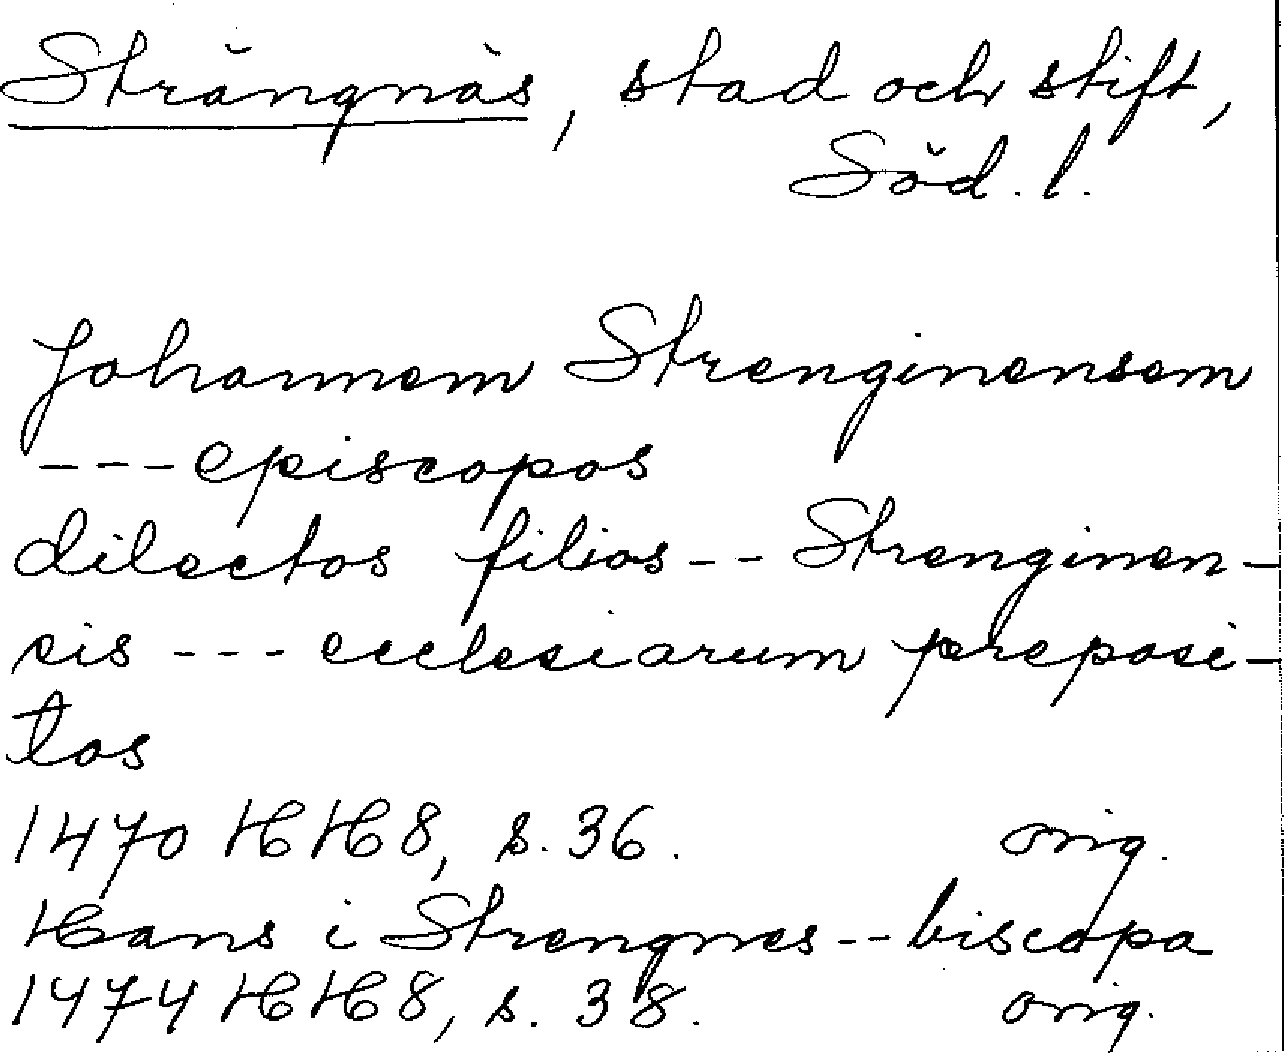 Strängnäs, stad och stift,
Söd. l.
Johannem Strenginensem
--- episcopos
dilectos filios -- Strenginen-
sis --- ecclesiarum preposi-
tos
1470 HH 8, s. 36. orig.
Hans i Strengnes -- biscopa
1474 HH 8, s. 38. orig.